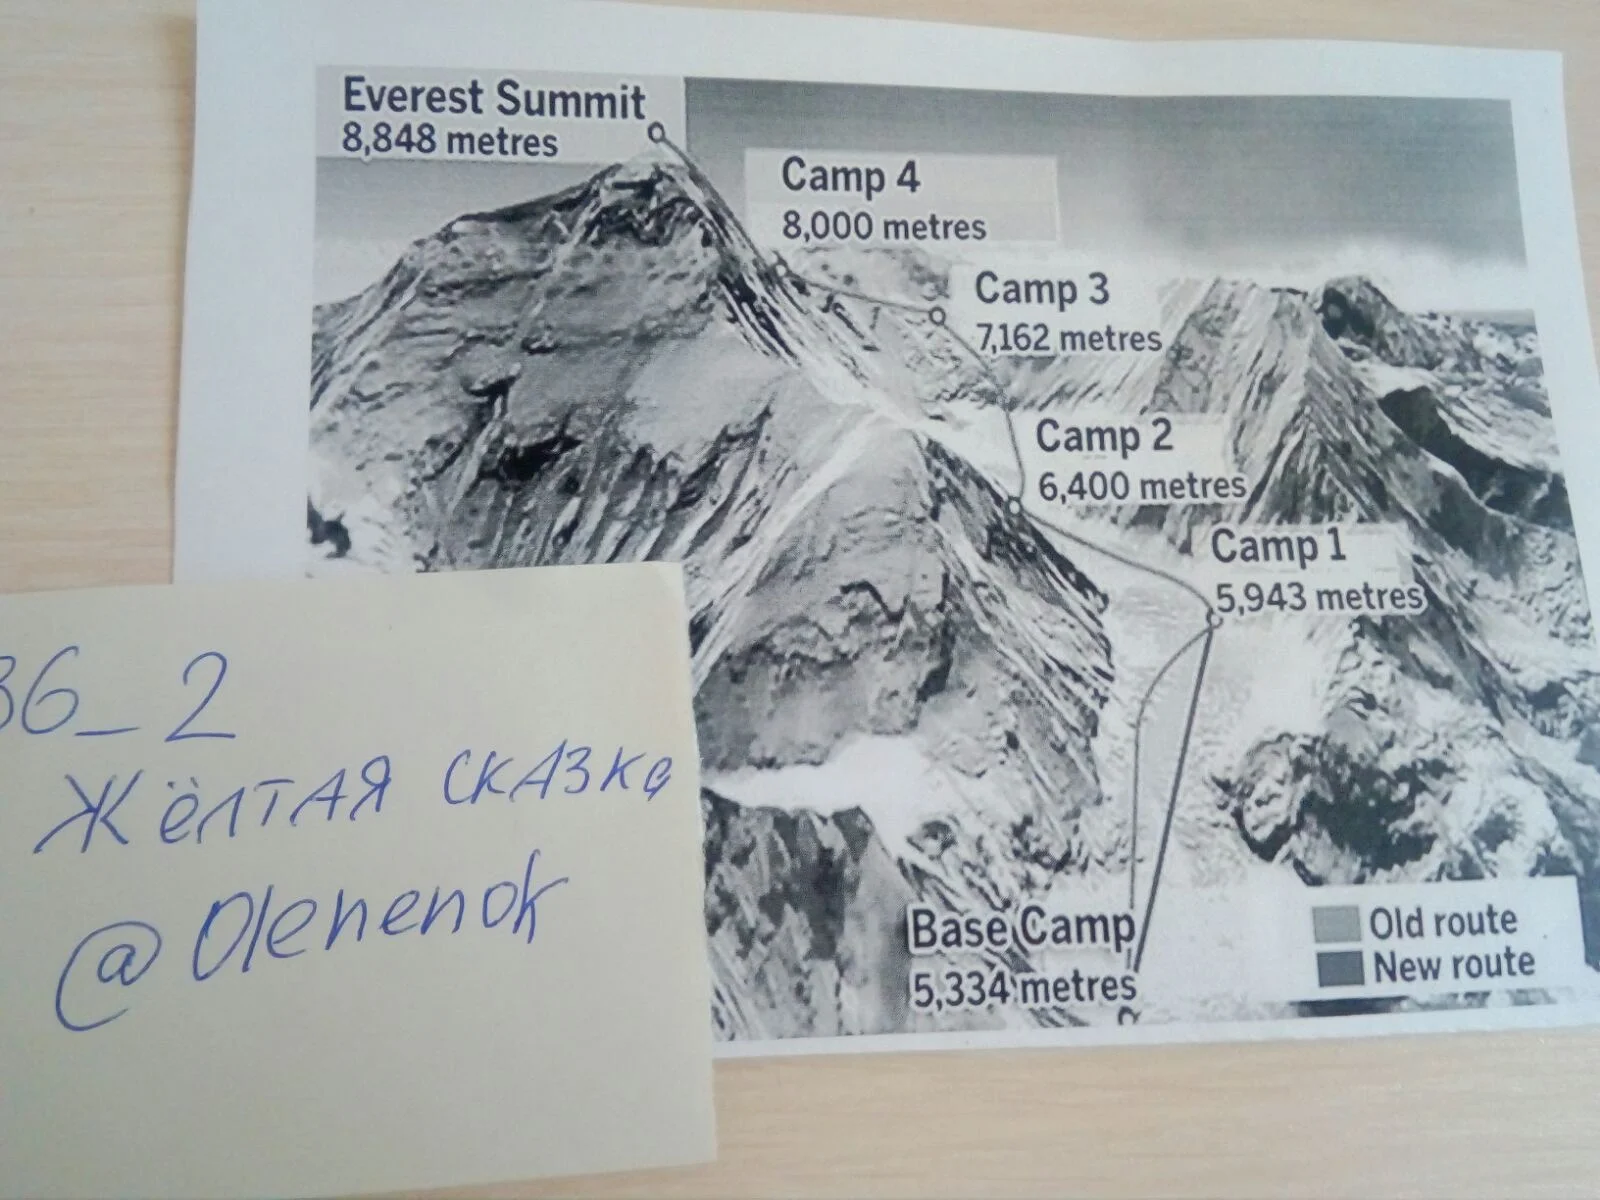 Everest Summit
8,848 metres
Camp 4
8,000 metres
Camp 3
7,162 metres
Camp 2
6,400 metres
Camp 1
5,943 metres
Base Camp
5,334 metres
Old route
New route
36_2
Жёлтая сказка
@Olenenok